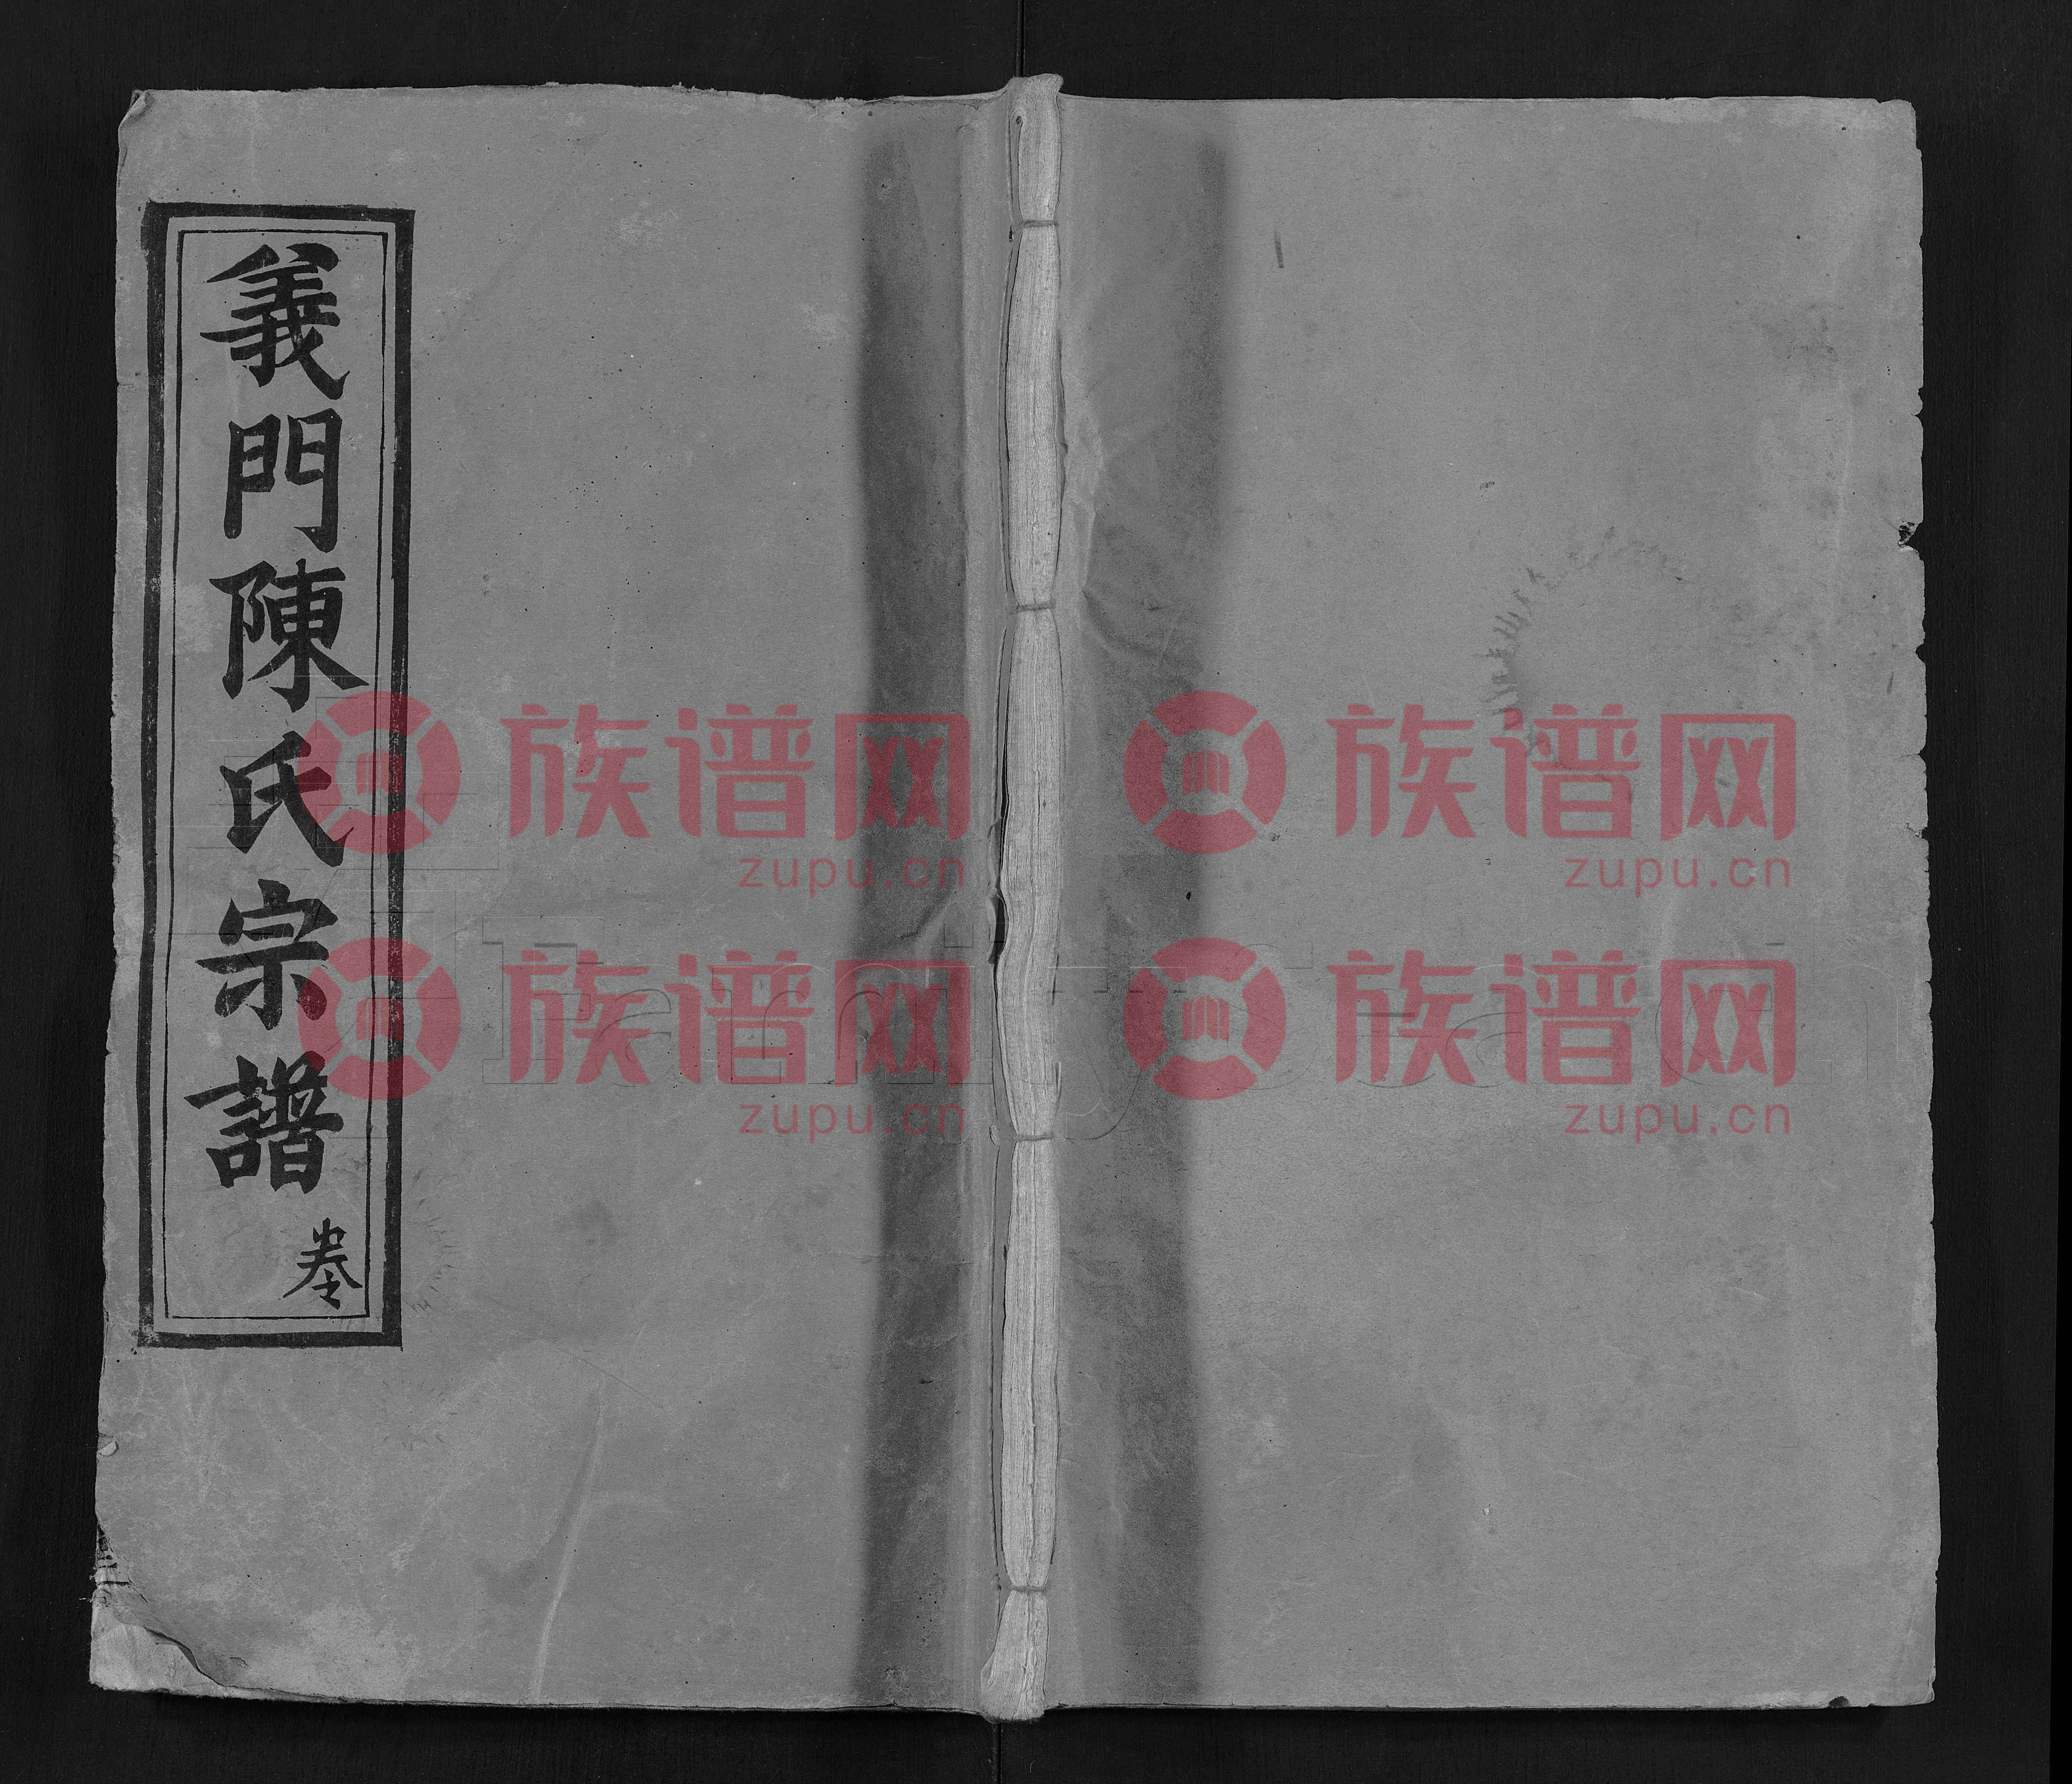 義門陳氏宗譜
卷
族谱网
zupu.cn
族谱网
zupu.cn
族谱网
zupu.cn
族谱网
zupu.cn
FamilySearch